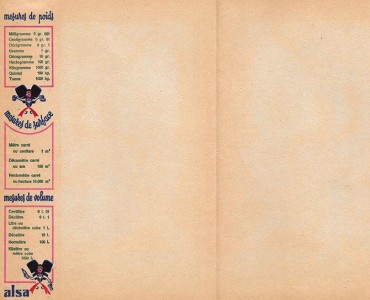 mesures de poids
Milligramme 0 gr. 001
Centigramme 0 gr. 01
Décigramme 0 gr. 1
Gramme 1 gr.
Décagramme 10 gr.
Hectogramme 100 gr.
Kilogramme 1000 gr.
Quintal 100 kg.
Tonne 1000 kg.
mesures de surface
Mètre carré
ou centiare 1 m²
Décamètre carré
ou are 100 m²
Hectomètre carré
ou hectare 10.000 m²
mesures de volume
Centilitre 0 l. 01
Décilitre 0 l. 1
Litre ou
décimètre cube 1 l.
Décalitre 10 l.
Hectolitre 100 l.
Kilolitre ou
mètre cube
1000 l.
alsa